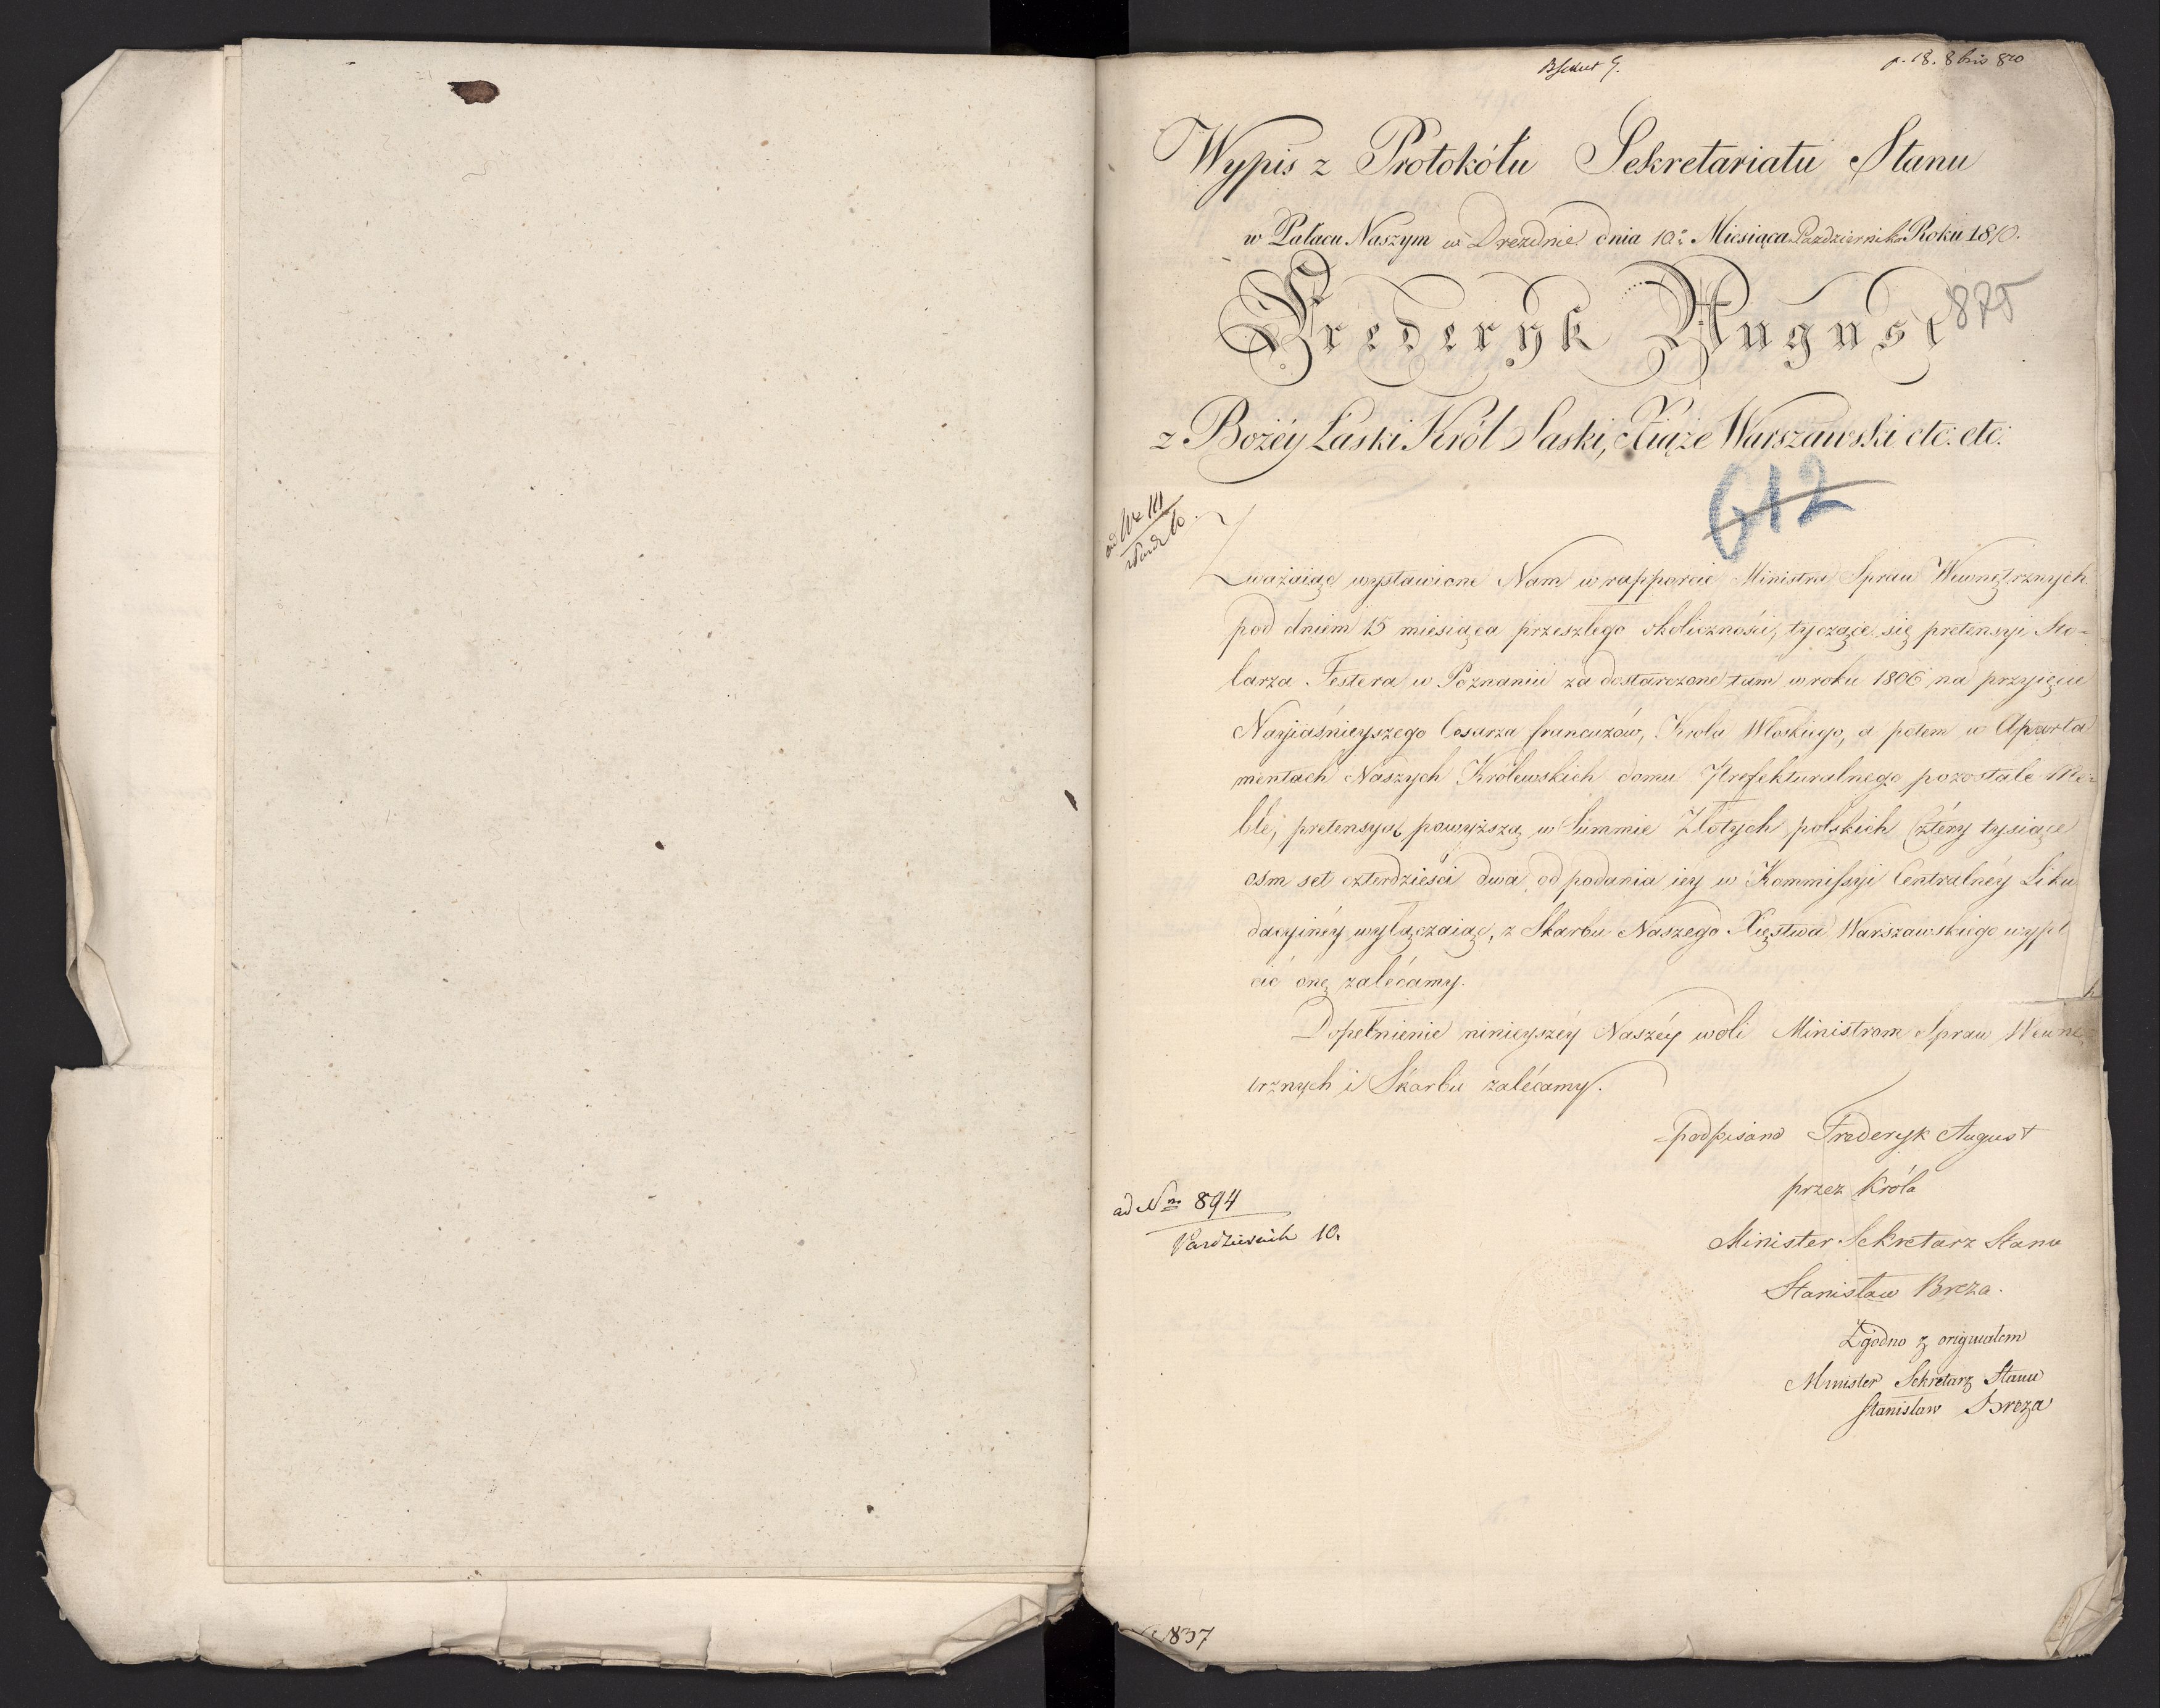 p. 18. 8bris 810
Wypis z Protokółu Sekretariatu Stanu
w Pałacu Naszym w Dreznie dnia 10º Miesiąca Pazdziernika Roku 1810.
Frederyk August
875
z Bożéy Łaski Król Saski, Xiąże Warszawski etc: etc:
612
Zważaiąc wystawione Nam w rapporcie Ministra Spraw Wewnętrznych
pod dniem 15 miesiąca przeszłego okoliczności, tyczące się pretensyi Sto-
larza Festera w Poznaniu za dostarczone tam w roku 1806 na przyięcie
Nayiaśnieyszego Cesarza francuzów, Króla Włoskiego, a potem w Aparta
mentach Naszych Królewskich domu Prefekturalnego pozostałe Me-
ble, pretensyą powyższą w Summie Złotych polskich Cztéry tysiące
ośm set czterdzieści dwa, od podania iey w Kommissyi Centralnéy Likw
dacyinéy wyłączaiąc, z Skarbu Naszego Xięstwa Warszawskiego wypł
cić onę zalécamy.
Dopełnienie ninieyszéy Naszéy woli Ministrom Spraw Wewnę
trznych i Skarbu zalécamy.
podpisano Frederyk August
przez Króla
ad Nro 894
Minister Sekretarz Stanu
Pazdziernik 10.
Stanisław Breza.
Zgodno z originałem
Minister Sekretarz Stanu
Stanisław Breza
837